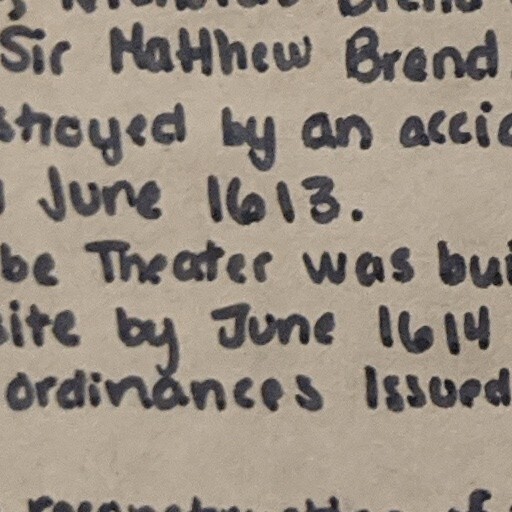 Sir Matthew Brend
stroyed by an accid
June 1613.
be Theater was bui
site by June 1614
ordinances Issued